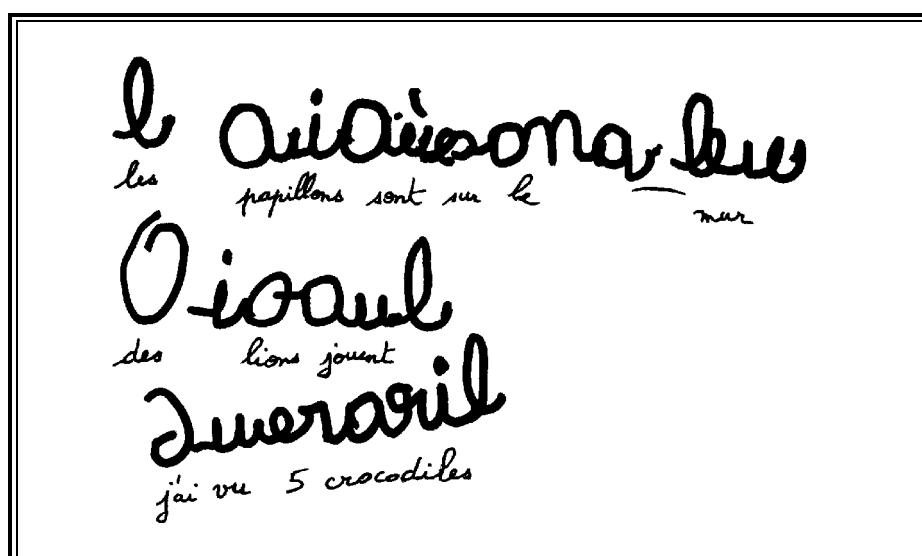 l aiaièesona leu
les papillons sont sur le mur
Oisaul
des lions jouent
j'ai vu 5 crocodiles